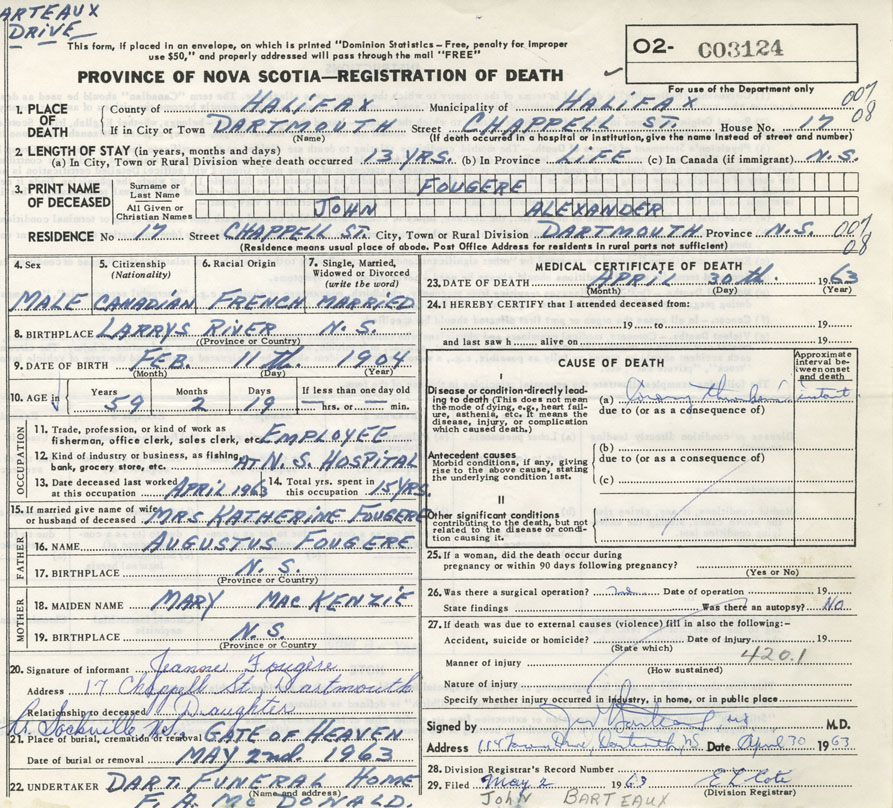 ARTEAUX
DRIVE
This form, if placed in an envelope, on which is printed "Dominion Statistics - Free, penalty for improper
use $50," and properly addressed will pass through the mail "FREE"
PROVINCE OF NOVA SCOTIA—REGISTRATION OF DEATH
O2- C03124
For use of the Department only
1. PLACE OF DEATH { County of HALIFAX Municipality of HALIFAX 007
If in City or Town DARTMOUTH Street CHAPPELL ST. House No. 17 08
(Name) (If death occurred in a hospital or institution, give the name instead of street and number)
2. LENGTH OF STAY (in years, months and days)
(a) In City, Town or Rural Division where death occurred 13 YRS. (b) In Province LIFE (c) In Canada (if immigrant) N.S.
3. PRINT NAME OF DECEASED
Surname or Last Name FOUGERE
All Given or Christian Names JOHN ALEXANDER
RESIDENCE No 17 Street CHAPPELL ST. City, Town or Rural Division DARTMOUTH Province N.S. 007 08
(Residence means usual place of abode. Post Office Address for residents in rural parts not sufficient)
4. Sex MALE
5. Citizenship (Nationality) CANADIAN
6. Racial Origin FRENCH
7. Single, Married, Widowed or Divorced (write the word) MARRIED
8. BIRTHPLACE LARRYS RIVER N.S.
(Province or Country)
9. DATE OF BIRTH FEB. 11 th. 1904
(Month) (Day) (Year)
10. AGE in Years 59 Months 2 Days 19 If less than one day old hrs. or min.
OCCUPATION
11. Trade, profession, or kind of work as
fisherman, office clerk, sales clerk, etc. EMPLOYEE
12. Kind of industry or business, as fishing,
bank, grocery store, etc. AT N.S. HOSPITAL
13. Date deceased last worked at this occupation APRIL 1963 14. Total yrs. spent in this occupation 15 YRS.
15. If married give name of wife or husband of deceased MRS KATHERINE FOUGERE
FATHER
16. NAME AUGUSTUS FOUGERE
17. BIRTHPLACE N.S.
(Province or Country)
MOTHER
18. MAIDEN NAME MARY MacKENZIE
19. BIRTHPLACE N.S.
(Province or Country)
20. Signature of informant Jeanne Fougère
Address 17 Chappell St., Dartmouth
Relationship to deceased Daughter
Sackville
21. Place of burial, cremation or removal GATE OF HEAVEN
Date of burial or removal MAY 2nd. 1963
22. UNDERTAKER DART. FUNERAL HOME
(Name and address)
F. A. McDONALD.
MEDICAL CERTIFICATE OF DEATH
23. DATE OF DEATH APRIL 30 th. 1963
(Month) (Day) (Year)
24. I HEREBY CERTIFY that I attended deceased from:
19 to 19
and last saw h alive on 19
CAUSE OF DEATH
Approximate interval between onset and death
I
Disease or condition directly leading to death (This does not mean
the mode of dying, e.g., heart failure, asthenia, etc. It means the
disease, injury, or complication
which caused death.)
(a) Coronary thrombosis instant
due to (or as a consequence of)
Antecedent causes
Morbid conditions, if any, giving
rise to the above cause, stating
the underlying condition last.
(b)
due to (or as a consequence of)
(c)
II
Other significant conditions
contributing to the death, but not
related to the disease or condition
causing it.
25. If a woman, did the death occur during
pregnancy or within 90 days following pregnancy?
(Yes or No)
26. Was there a surgical operation? no Date of operation 19
State findings Was there an autopsy? No
27. If death was due to external causes (violence) fill in also the following:-
Accident, suicide or homicide? Date of injury 19
(State which)
Manner of injury 420.1
(How sustained)
Nature of injury
Specify whether injury occurred in Industry, in home, or in public place
Signed by M.D.
Address Dartmouth NS Date April 30 1963
28. Division Registrar's Record Number
29. Filed May 2 1963
(Division Registrar)
JOHN BARTEAUX